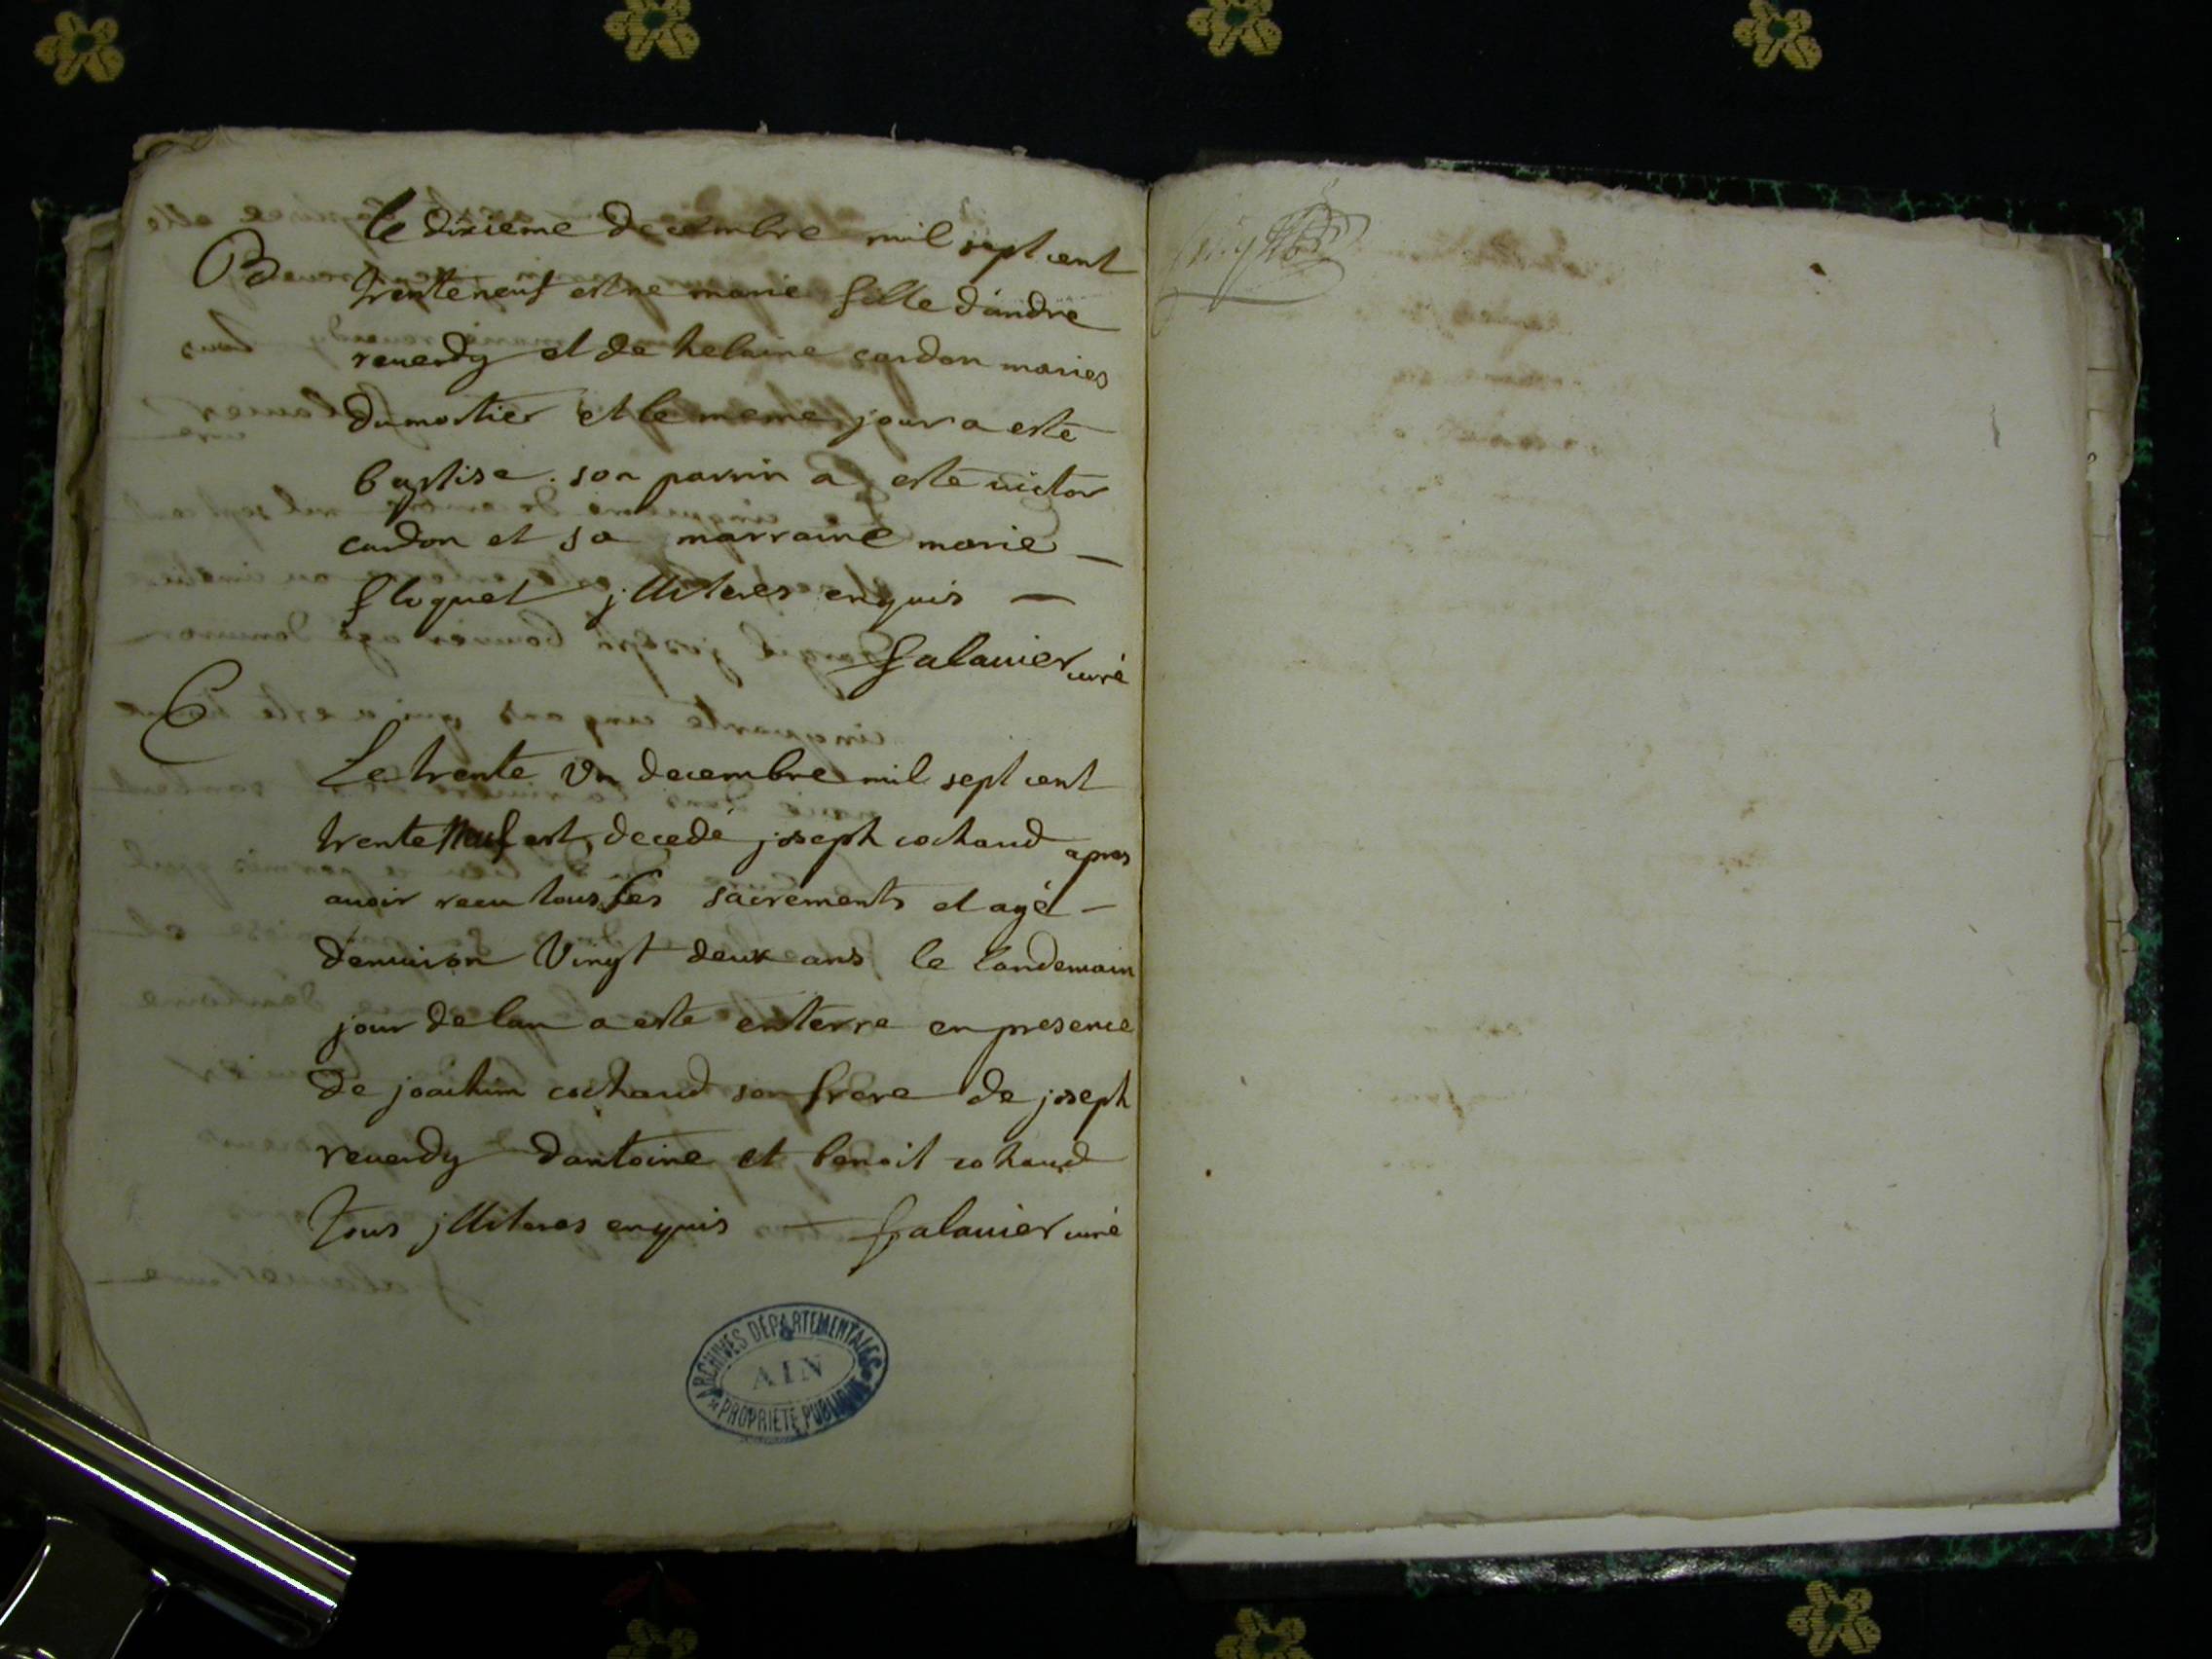 B
le dixieme decembre mil sept cent
trente neuf est ne marie fille dandre
reuerdy et de helaine cardon maries
du mortier et le meme jour a esté
baptise. son parrin a esté uictor
cardon et sa marraine marie —
floquet jlliteres enquis —
falauier curé
Le trente un decembre mil sept cent
trente neuf est decedé joseph cochaud apres
auoir receu tous ses sacrements et agé —
denuiron Vingt deux ans le landemain
jour de lan a esté enterre en presence
de joachim cochaud son frere de joseph
reuerdy dantoine et benoit cohaud
tous jlliteres enquis — falauier curé
ARCHIVES DÉPARTEMENTALES
AIN
PROPRIÉTÉ PUBLIQUE